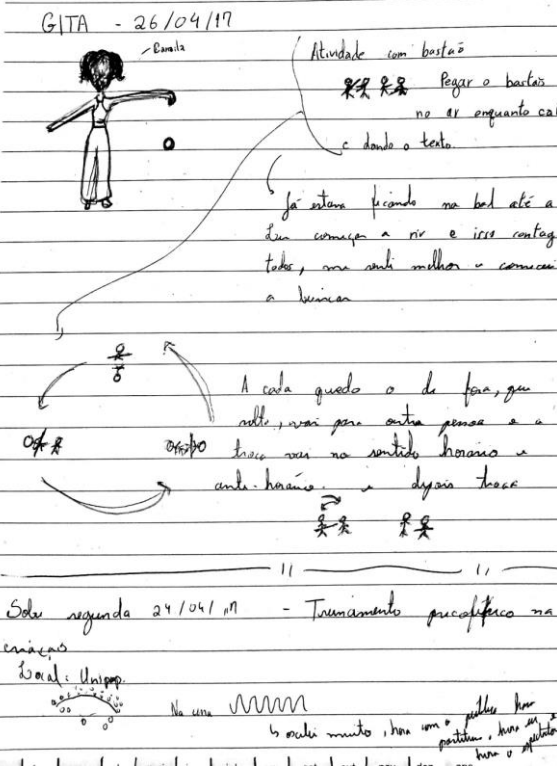 GITA - 26/04/17
Atividade com bastão
Pegar o bastão
no ar enquanto cai
e dando o texto
Já estava ficando na bad até a
Lu começar a rir e isso contag
todos, me senti melhor e comecei
a brincar
A cada queda o de fora, que
solta, vai para outra pessoa e a
troca vai no sentido horário e
anti-horário. e depois troca
Sobre segunda 24/04/17 - Treinamento na
criação
Local: Unipop.
Na cena
muito, hora com o público hora
partitura, hora eu e
hora o espectador